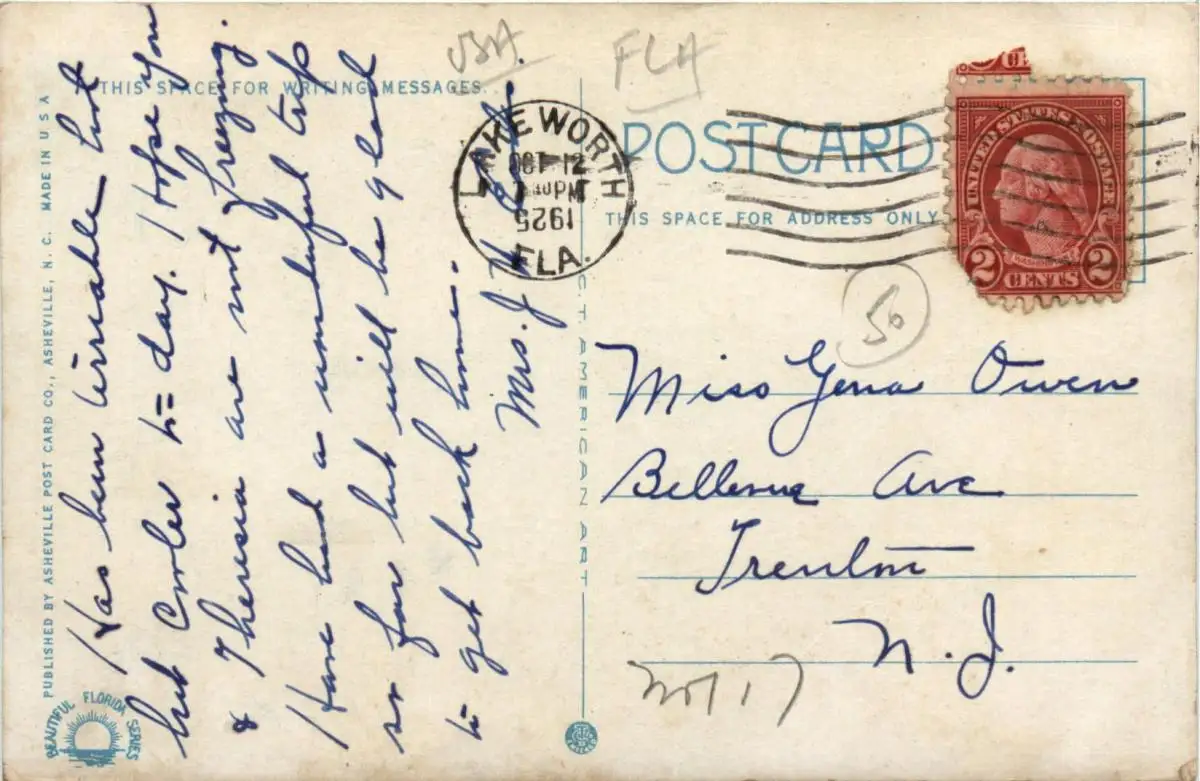 USA
FLA
THIS SPACE FOR WRITING MESSAGES
POSTCARD
THIS SPACE FOR ADDRESS ONLY
PUBLISHED BY ASHEVILLE POST CARD CO., ASHEVILLE, N. C. MADE IN USA
Has been terrable hot
but cooler to=day. I Hope you
& Theresia are not freezing.
Have had a wonderful trip
so far but will be glad
to get back home.
Mrs. J.
LAKE WORTH
OCT 12
PM
1925
FLA.
UNITED STATES POSTAGE
WASHINGTON
2 CENTS 2
C.T. AMERICAN ART
50
Miss Gena Owen
Bellevue Ave
Trenton
N. J.
BEAUTIFUL FLORIDA SERIES